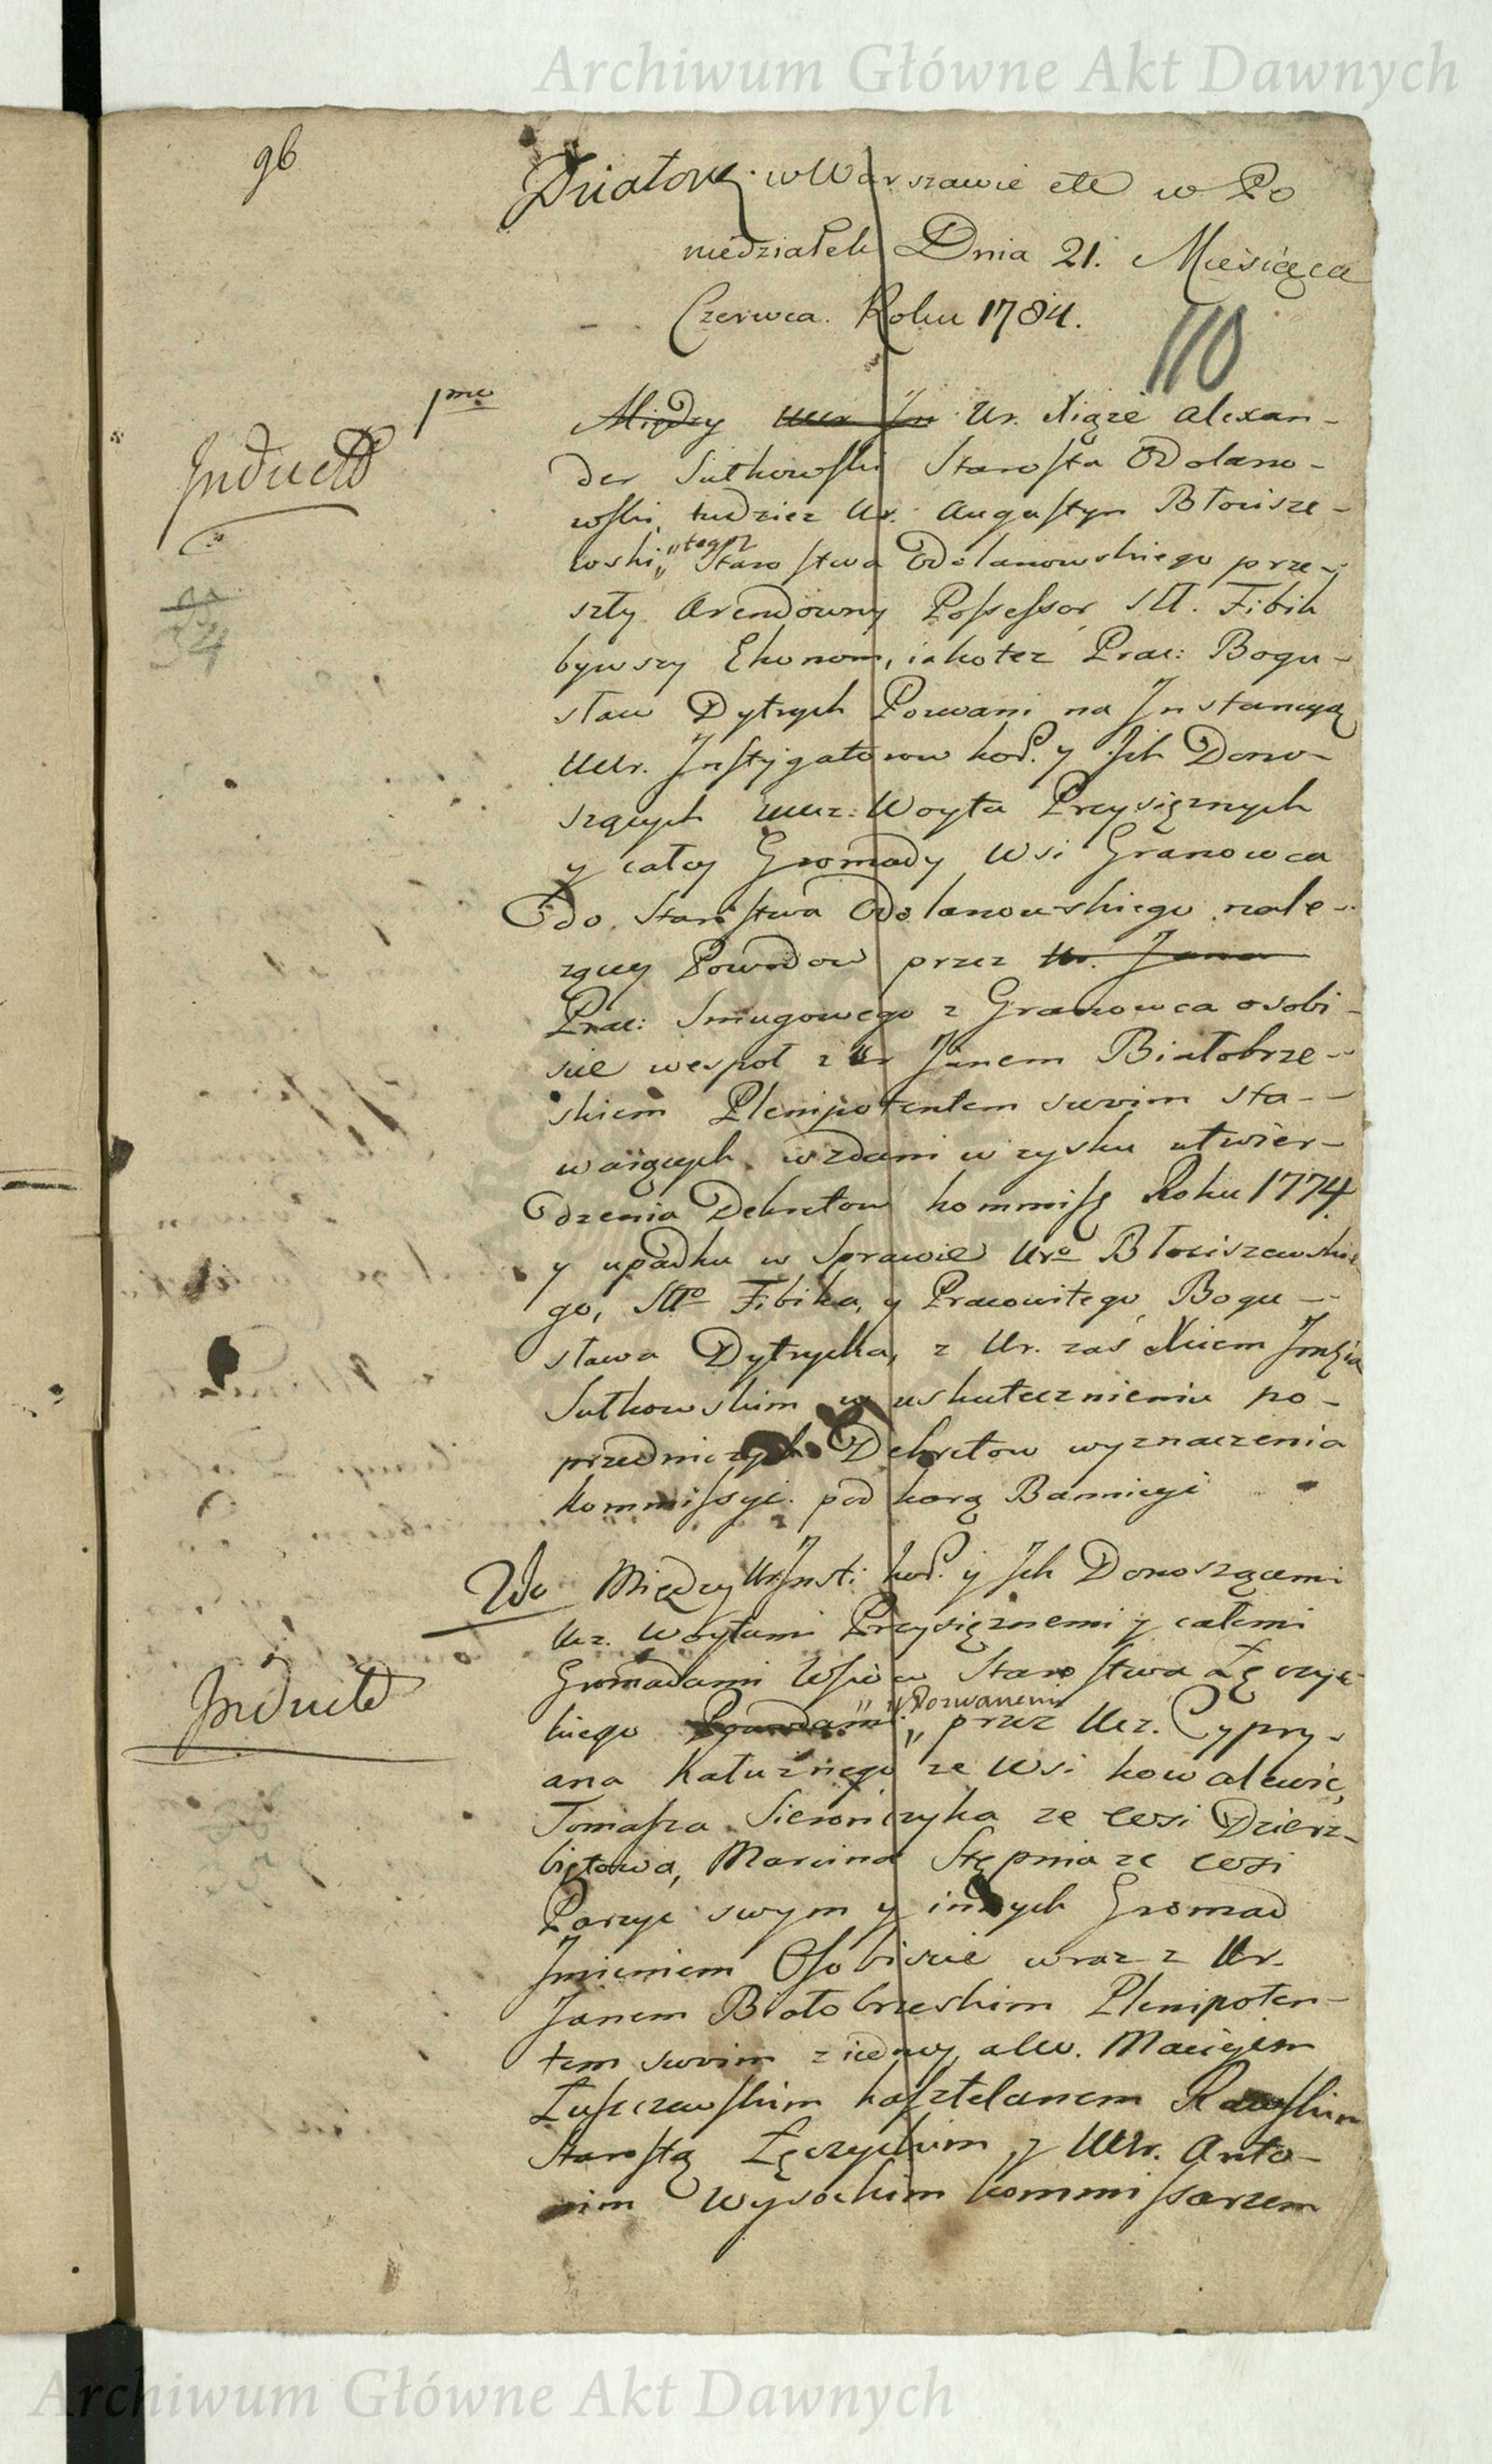 Archiwum Główne Akt Dawnych
96
Działo się w Warszawie etc w Po
niedziałek Dnia 21. Miesiąca
Czerwca. Roku 1784.
110
1mo
Między Uur. In Ur. Xiąże Alexan-
Inducta
der Sułkowski Starosta Odolano-
wski, tudzież Ur. Augustyn Błocisze-
wski „tegoż Starostwa Odolanowskiego prze-
szły Arendowny Possessor, Sł. Fibik
54
bywszy Ekonom, iakoteż Prac: Bogu-
sław Dytrych Pozwani na Instancyą
UUr. Instygatorow kor. y Ich Dono-
szących Uucz: Woyta Przysiężnych
y całey Gromady Wsi Granowca
do Starostwa Odolanowskiego nale-
żącey Powodow przez Ur. Jana
Prac: Smugowego z Granowca osobi-
scie wespoł z Ur Janem Białobrze-
skiem Plenipotentem swoim sta-
waiących, wzdani w zysku utwier-
dzenia Dekretow kommissij Roku 1774
y upadku w Sprawie Uro Błociszewskie
go, Sło Fibika, y Pracowitego Bogu-
sława Dytrycha, z Ur. zaś Xciem Jmcią
Sułkowskim w uskutecznieniu po-
przedniczych Dekretow wyznaczenia
Kommissyi. pod karą Bannicyi
2do Między Ur. Insti: kor. y Ich Donoszącemi
Ucz. Woytami Przysiężnemi y całemi
Gromadami Wsiow Starostwa Łęczyc-
Inducta
kiego Powodami „ „Pozwanemi przez Ucz. Cypry-
ana Kałużnego ze Wsi Kowalewic,
Tomasza Sierończyka ze Wsi Dzierz-
biętowa, Marcina Stępnia ze Wsi
Parzyc swym y innych Gromad
Imieniem Osobiscie wraz z Ur.
Janem Białobrzeskim Plenipoten-
tem swoim z iedney, a Uw. Maciejem
Łuszczewskim kasztelanem Rawskim
Starostą Łęczyckim, y UUr. Anto-
nim Wysockim kommissarzem
Archiwum Główne Akt Dawnych